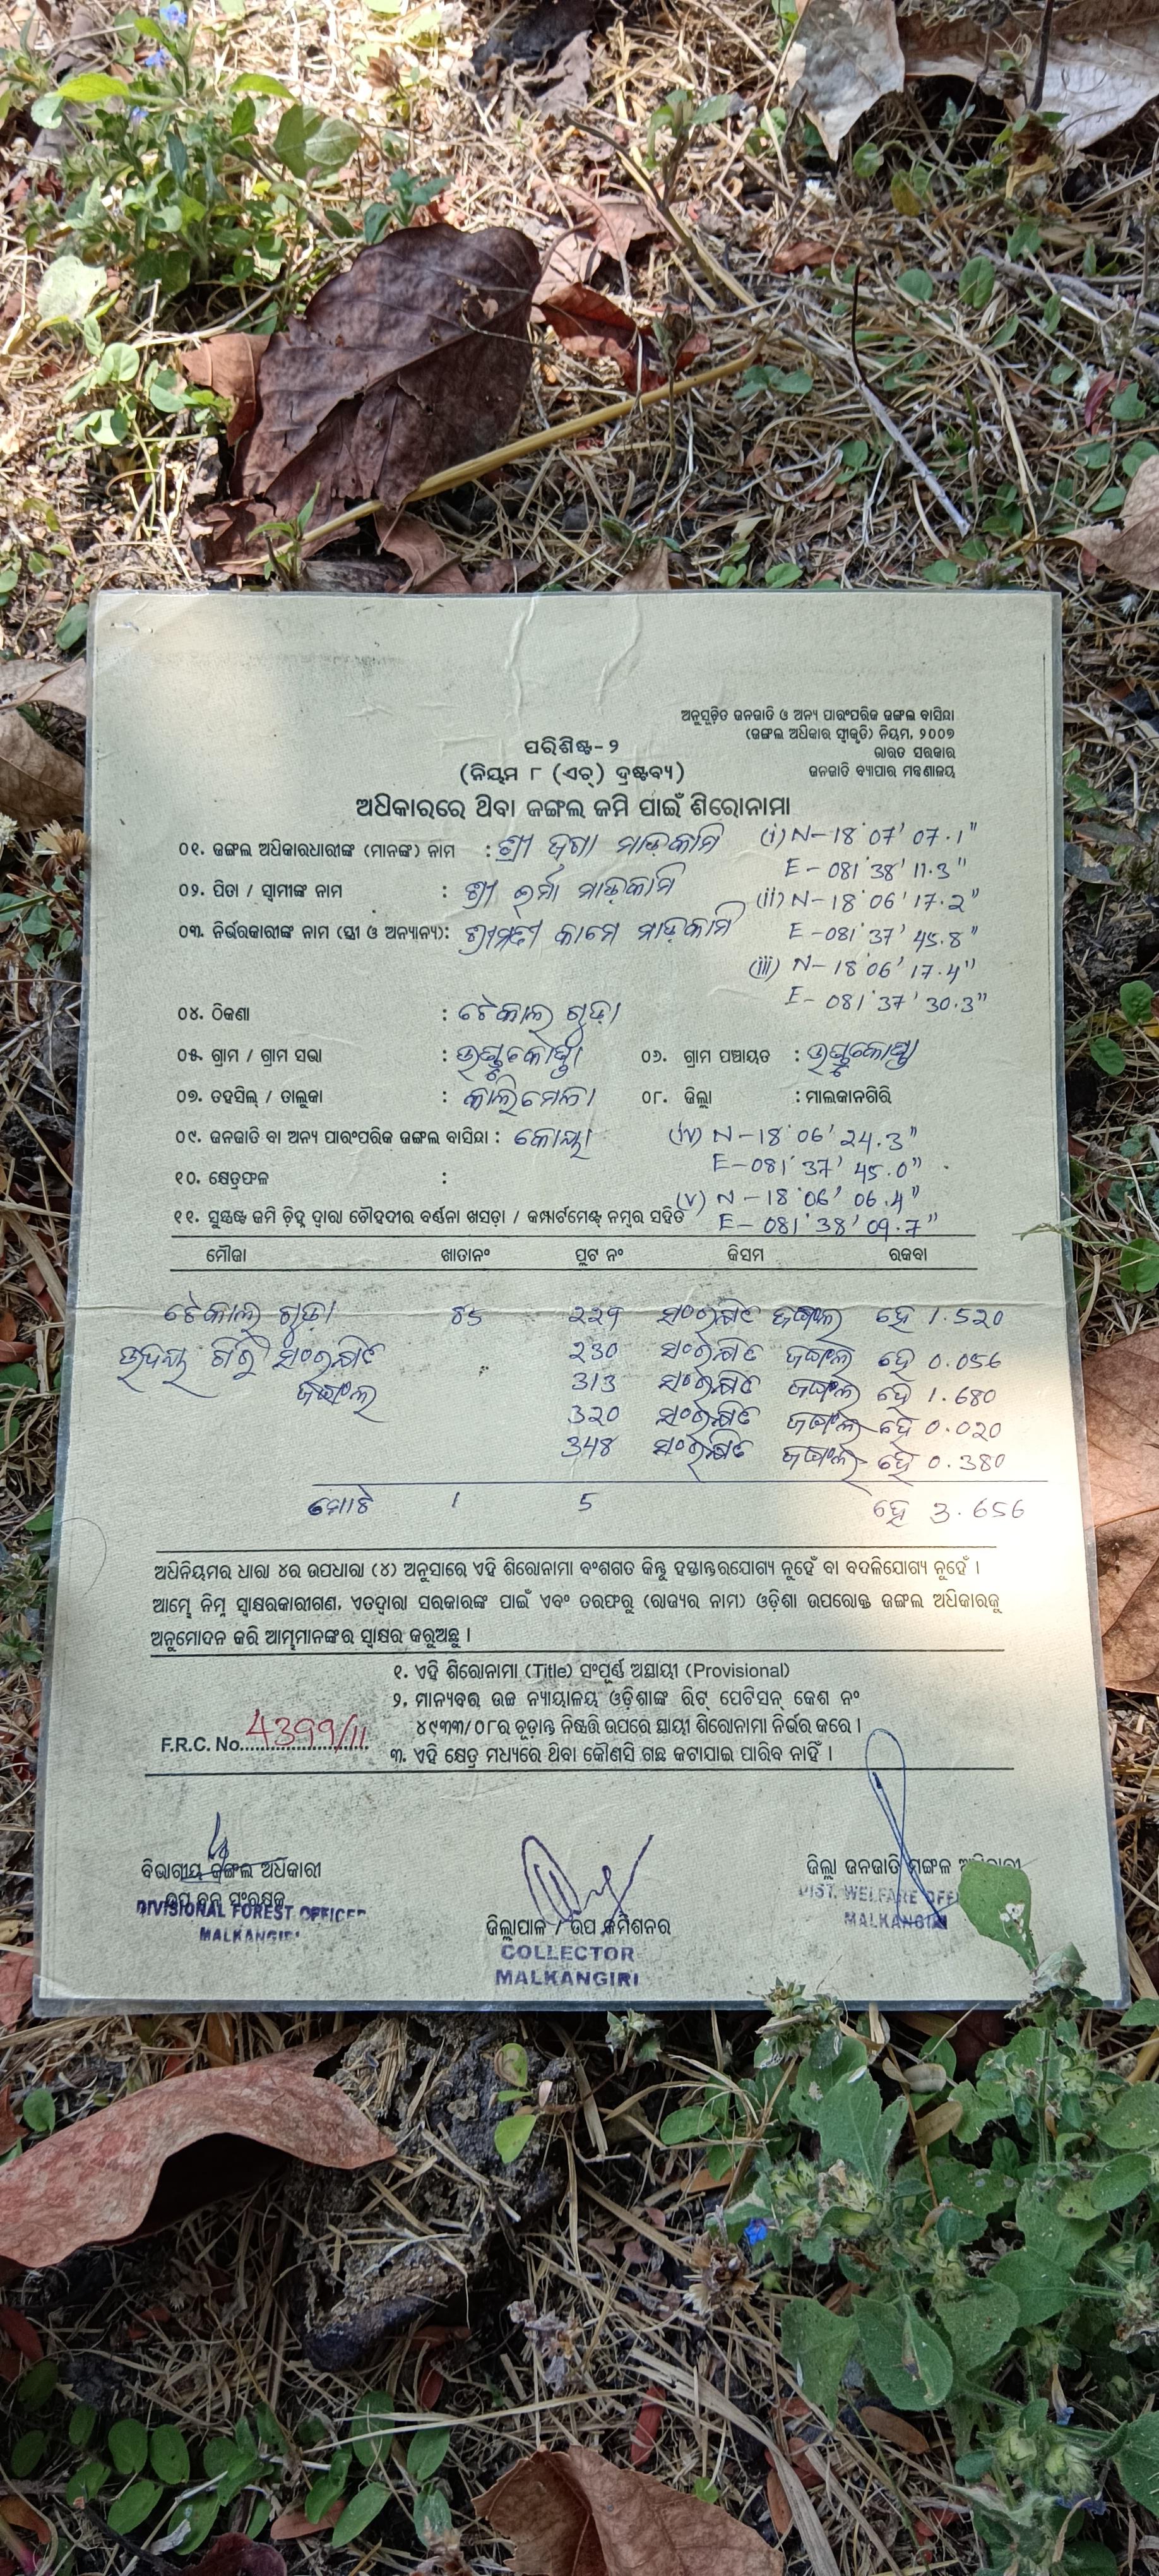 ଅନୁସୂଚିତ ଜନଜାତି ଓ ଅନ୍ୟ ପାରଂପରିକ ଜଙ୍ଗଲ ବାସିନ୍ଦା
(ଜଙ୍ଗଲ ଅଧିକାର ସ୍ୱୀକୃତି) ନିୟମ, ୨୦୦୭
ଭାରତ ସରକାର
ଜନଜାତି ବ୍ୟାପାର ମନ୍ତ୍ରଣାଳୟ
ପରିଶିଷ୍ଟ-୨
(ନିୟମ ୮ (ଏଚ୍) ଦ୍ରଷ୍ଟବ୍ୟ)
ଅଧିକାରରେ ଥିବା ଜଙ୍ଗଲ ଜମି ପାଇଁ ଶିରୋନାମା
୦୧. ଜଙ୍ଗଲ ଅଧିକାରଧାରୀଙ୍କ (ମାନଙ୍କ) ନାମ : ଶ୍ରୀ ମାଡ଼କାମି (i) N-18°07'07.1"
E-081°38'11.3"
୦୨. ପିତା / ସ୍ୱାମୀଙ୍କ ନାମ : ଶ୍ରୀ ଇର୍ମା ମାଡ଼କାମି (ii) N-18°06'17.2"
୦୩. ନିର୍ଭରକାରୀଙ୍କ ନାମ (ସ୍ତ୍ରୀ ଓ ଅନ୍ୟାନ୍ୟ): ଶ୍ରୀମତୀ କାମେ ମାଡ଼କାମି E-081°37'45.8"
(iii) N-18°06'17.4"
E-081°37'30.3"
୦୪. ଠିକଣା : ଟେକାଲ ଗୁଡ଼ା
୦୫. ଗ୍ରାମ / ଗ୍ରାମ ସଭା : ୦୬. ଗ୍ରାମ ପଞ୍ଚାୟତ :
୦୭. ତହସିଲ୍ / ତାଲୁକା : କାଲିମେଳା ୦୮. ଜିଲ୍ଲା : ମାଲକାନଗିରି
୦୯. ଜନଜାତି ବା ଅନ୍ୟ ପାରଂପରିକ ଜଙ୍ଗଲ ବାସିନ୍ଦା : କୋୟା (iv) N-18°06'24.3"
E-081°37'45.0"
୧୦. କ୍ଷେତ୍ରଫଳ : (v) N-18°06'06.4"
୧୧. ସୁସ୍ପଷ୍ଟ ଜମି ଚିହ୍ନ ଦ୍ୱାରା ଚୌହଦୀର ବର୍ଣ୍ଣନା ଖସଡ଼ା / କମ୍ପାର୍ଟମେଣ୍ଟ୍ ନମ୍ବର ସହିତ E-081°38'09.7"
ମୌଜା ଖାତାନଂ ପ୍ଲଟ ନଂ କିସମ ରକବା
ଟେକାଲ ଗୁଡ଼ା 85 229 ସଂରକ୍ଷିତ ଜଙ୍ଗଲ ହେ 1.520
ଉଦୟ ଗିରି ସଂରକ୍ଷିତ 230 ସଂରକ୍ଷିତ ଜଙ୍ଗଲ ହେ 0.056
ଜଙ୍ଗଲ 313 ସଂରକ୍ଷିତ ଜଙ୍ଗଲ ହେ 1.680
320 ସଂରକ୍ଷିତ ଜଙ୍ଗଲ ହେ 0.020
348 ସଂରକ୍ଷିତ ଜଙ୍ଗଲ ହେ 0.380
ମୋଟ 1 5 ହେ 3.656
ଅଧିନିୟମର ଧାରା ୪ର ଉପଧାରା (୪) ଅନୁସାରେ ଏହି ଶିରୋନାମା ବଂଶଗତ କିନ୍ତୁ ହସ୍ତାନ୍ତରଯୋଗ୍ୟ ନୁହେଁ ବା ବଦଳିଯୋଗ୍ୟ ନୁହେଁ ।
ଆମ୍ଭେ ନିମ୍ନ ସ୍ୱାକ୍ଷରକାରୀଗଣ, ଏତଦ୍ୱାରା ସରକାରଙ୍କ ପାଇଁ ଏବଂ ତରଫରୁ (ରାଜ୍ୟର ନାମ) ଓଡ଼ିଶା ଉପରୋକ୍ତ ଜଙ୍ଗଲ ଅଧିକାରକୁ
ଅନୁମୋଦନ କରି ଆମ୍ଭମାନଙ୍କର ସ୍ୱାକ୍ଷର କରୁଅଛୁ ।
୧. ଏହି ଶିରୋନାମା (Title) ସଂପୂର୍ଣ୍ଣ ଅସ୍ଥାୟୀ (Provisional)
୨. ମାନ୍ୟବର ଉଚ୍ଚ ନ୍ୟାୟାଳୟ ଓଡ଼ିଶାଙ୍କ ରିଟ୍ ପେଟିସନ୍ କେଶ ନଂ
୪୯୩୩/୦୮ର ଚୂଡ଼ାନ୍ତ ନିଷ୍ପତ୍ତି ଉପରେ ସ୍ଥାୟୀ ଶିରୋନାମା ନିର୍ଭର କରେ ।
F.R.C. No. 4399/11
୩. ଏହି କ୍ଷେତ୍ର ମଧ୍ୟରେ ଥିବା କୌଣସି ଗଛ କଟାଯାଇ ପାରିବ ନାହିଁ ।
ବିଭାଗୀୟ ଜଙ୍ଗଲ ଅଧିକାରୀ
ଉପ ବନ ସଂରକ୍ଷକ
DIVISIONAL FOREST OFFICER
MALKANGIRI
ଜିଲ୍ଲାପାଳ / ଉପ କମିଶନର
COLLECTOR
MALKANGIRI
ଜିଲ୍ଲା ଜନଜାତି ମଙ୍ଗଳ ଅଧିକାରୀ
DIST. WELFARE OFF
MALKANGIRI